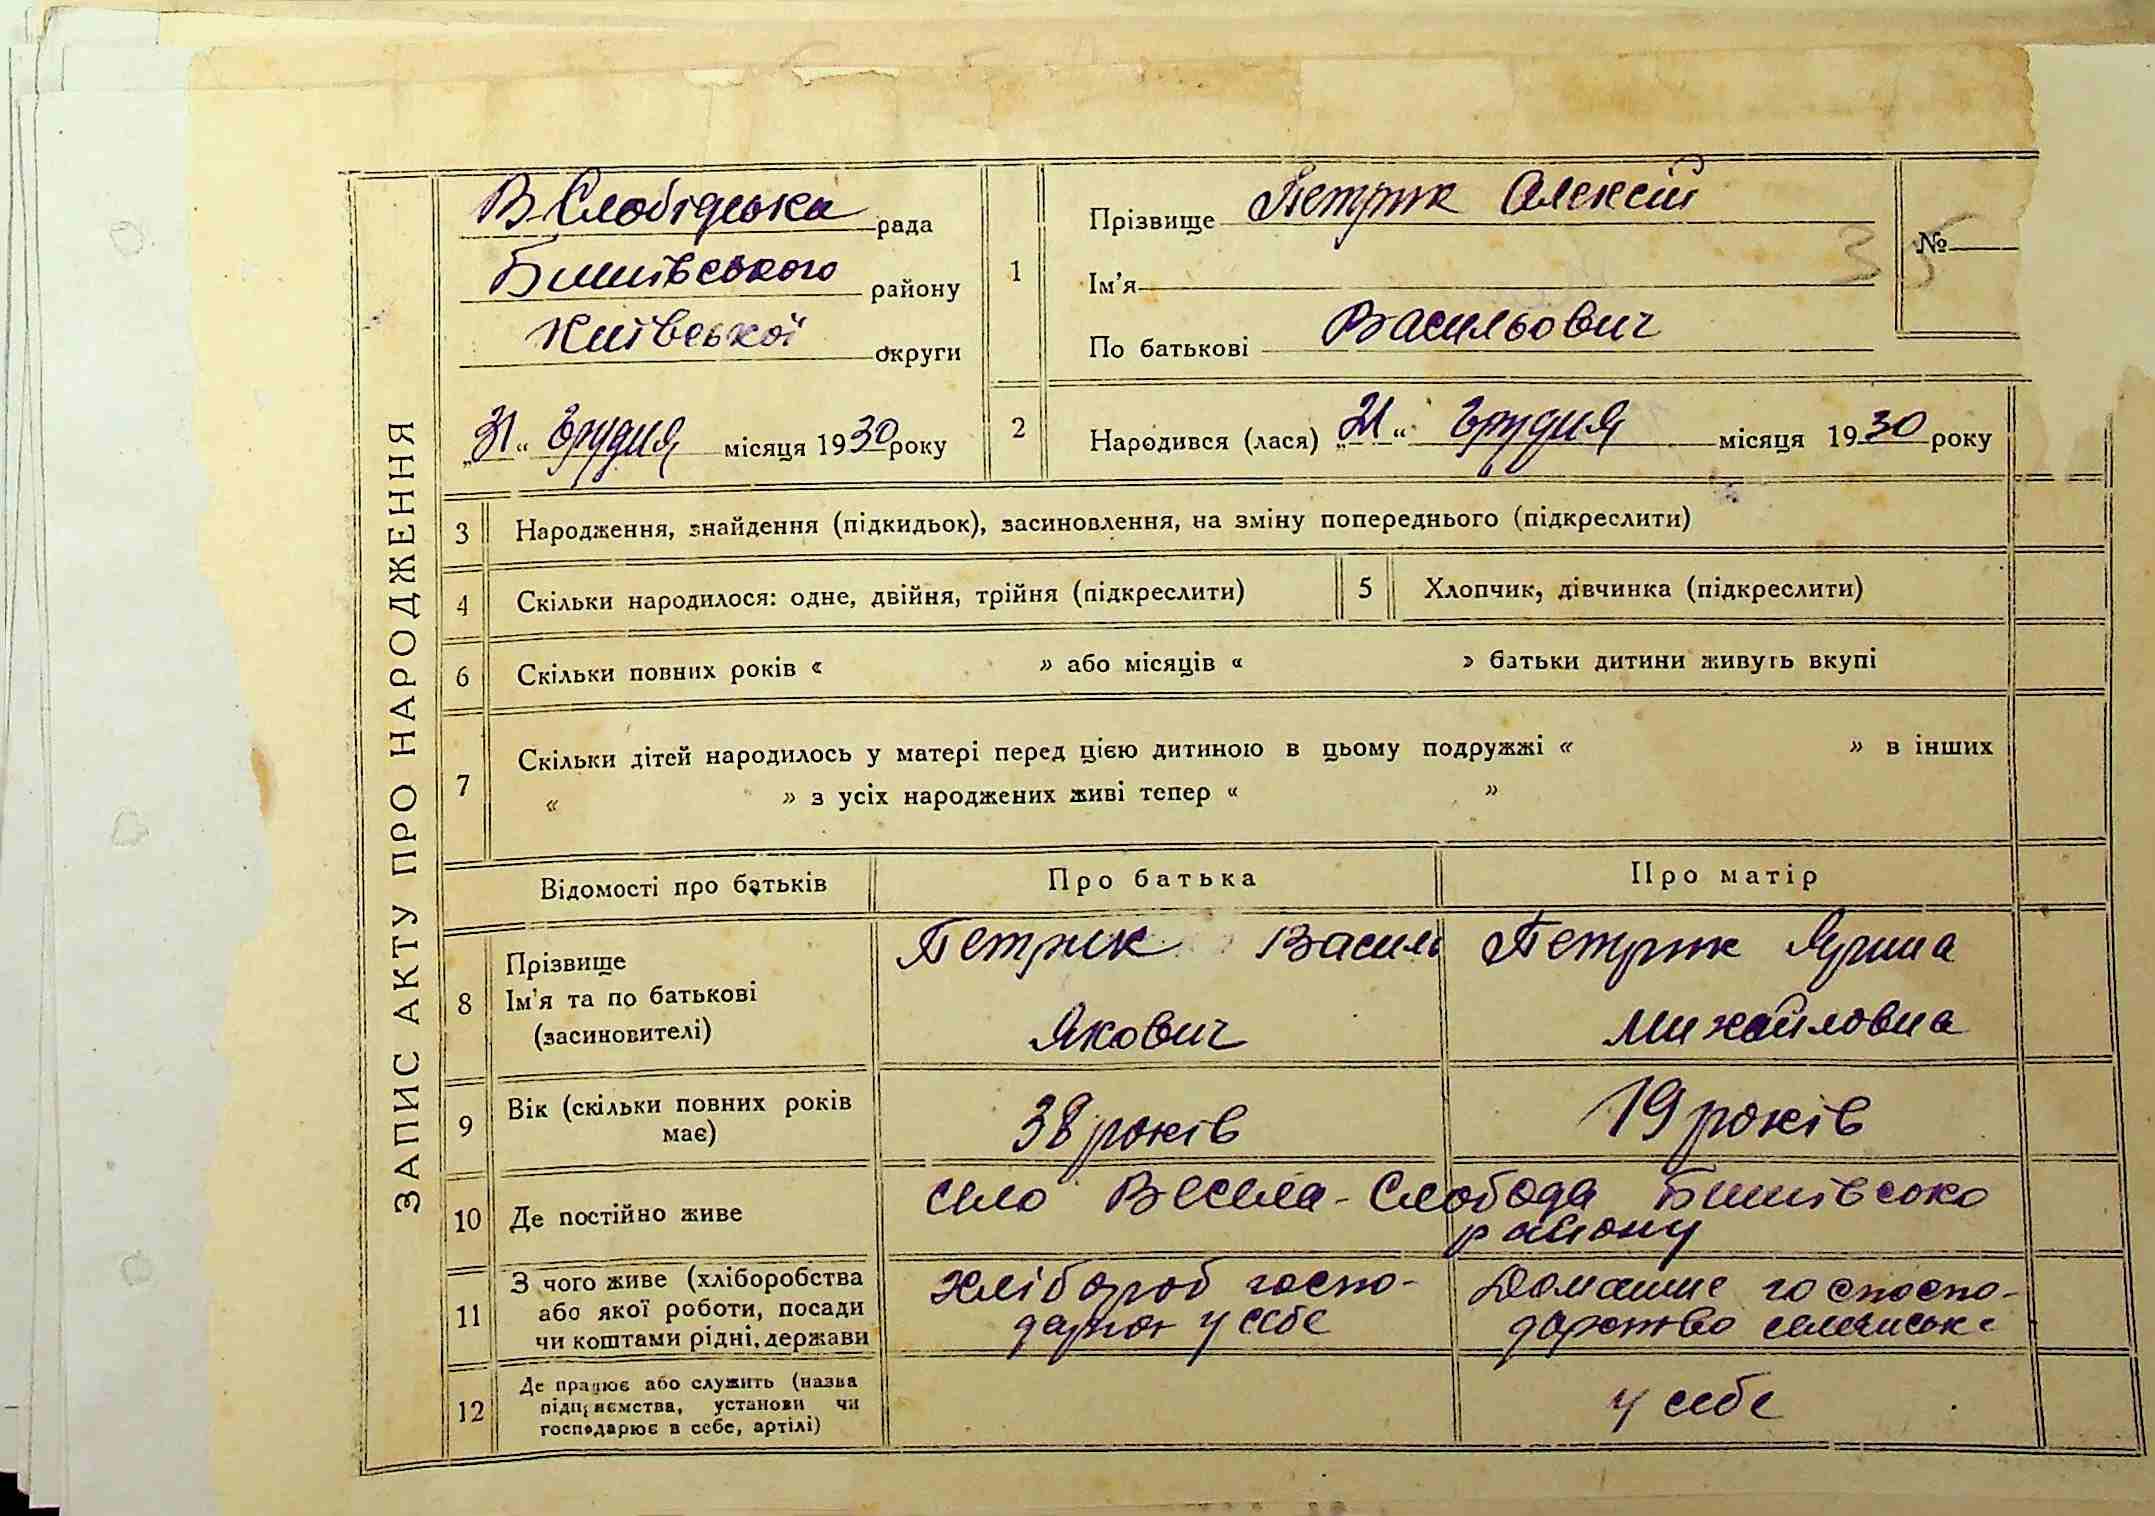 ЗАПИС АКТУ ПРО НАРОДЖЕННЯ
В-Слобідська рада
Бишівського району
Київської округи
„31“ грудня місяця 1930 року
1
Прізвище Петрик Олексій
Ім'я
По батькові Васильович
№
35
2
Народився (лася) „21“ грудня місяця 1930 року
3 Народження, знайдення (підкидьок), засиновлення, на зміну попереднього (підкреслити)
4 Скільки народилося: одне, двійня, трійня (підкреслити)
5 Хлопчик, дівчинка (підкреслити)
6 Скільки повних років « » або місяців « » батьки дитини живуть вкупі
7 Скільки дітей народилось у матері перед цією дитиною в цьому подружжі « » в інших
« » з усіх народжених живі тепер « »
Відомості про батьків
Про батька
Про матір
8
Прізвище
Ім'я та по батькові
(засиновителі)
Петрик Василь
Якович
Петрик Ярина
Михайловна
9
Вік (скільки повних років
має)
38 років
19 років
10 Де постійно живе
село Весела-Слобода Бишівсько
району
11
З чого живе (хліборобства
або якої роботи, посади
чи коштами рідні, держави
хлібороб госпо-
дарює у себе
Домашнє госпоспо-
дарство
12
Де працює або служить (назва
підприємства, установи чи
господарює в себе, артілі)
у себе